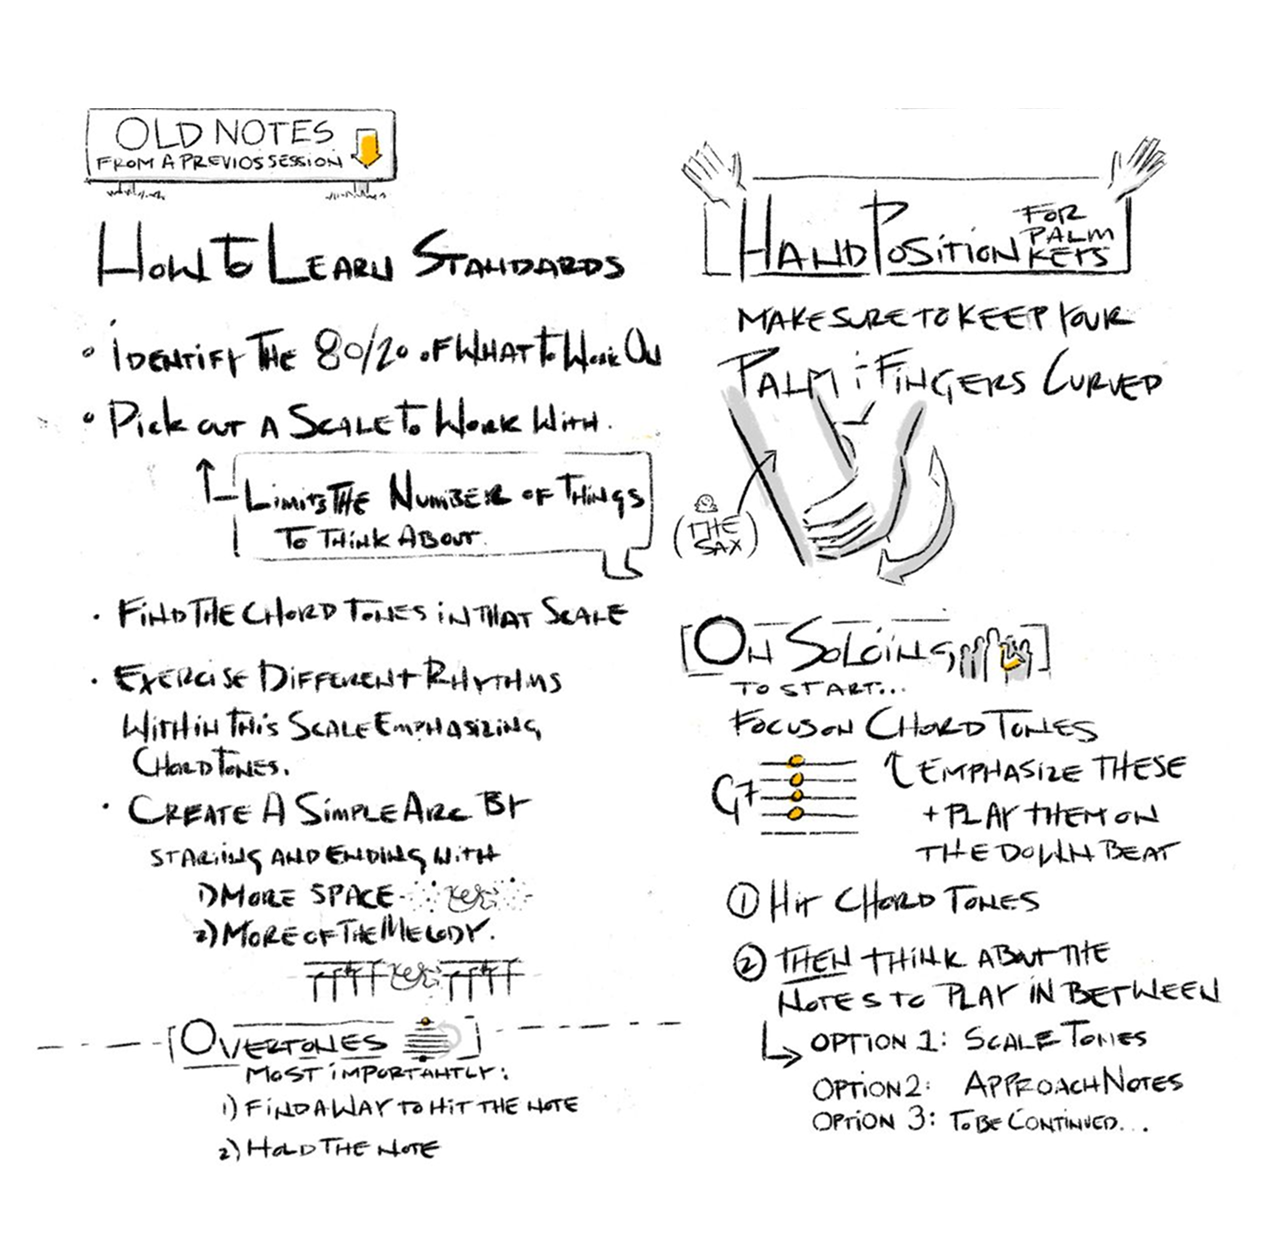 OLD NOTES
FROM A PREVIOS SESSION
HOW TO LEARN STANDARDS
• IDENTIFY THE 80/20 OF WHAT TO WORK ON
• PICK OUT A SCALE TO WORK WITH.
LIMITS THE NUMBER OF THINGS
TO THINK ABOUT.
• FIND THE CHORD TONES IN THAT SCALE
• EXERCISE DIFFERENT RHYTHMS
WITHIN THIS SCALE EMPHASIZING
CHORD TONES.
• CREATE A SIMPLE ARC BY
STARIING AND ENDING WITH
1) MORE SPACE
2) MORE OF THE MELODY.
OVERTONES
MOST IMPORTANTLY:
1) FIND A WAY TO HIT THE NOTE
2) HOLD THE NOTE
HAND POSITION FOR PALM KEYS
MAKE SURE TO KEEP YOUR
PALM & FINGERS CURVED
(THE SAX)
ON SOLOING
TO START...
FOCUS ON CHORD TONES
G7
EMPHASIZE THESE
+ PLAY THEM ON
THE DOWN BEAT
① HIT CHORD TONES
② THEN THINK ABOUT THE
NOTES TO PLAY IN BETWEEN
OPTION 1: SCALE TONES
OPTION 2: APPROACH NOTES
OPTION 3: TO BE CONTINUED...